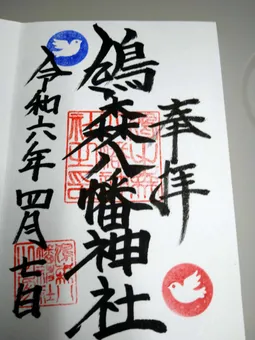 奉拝
鳩森八幡神社
令和六年四月七日